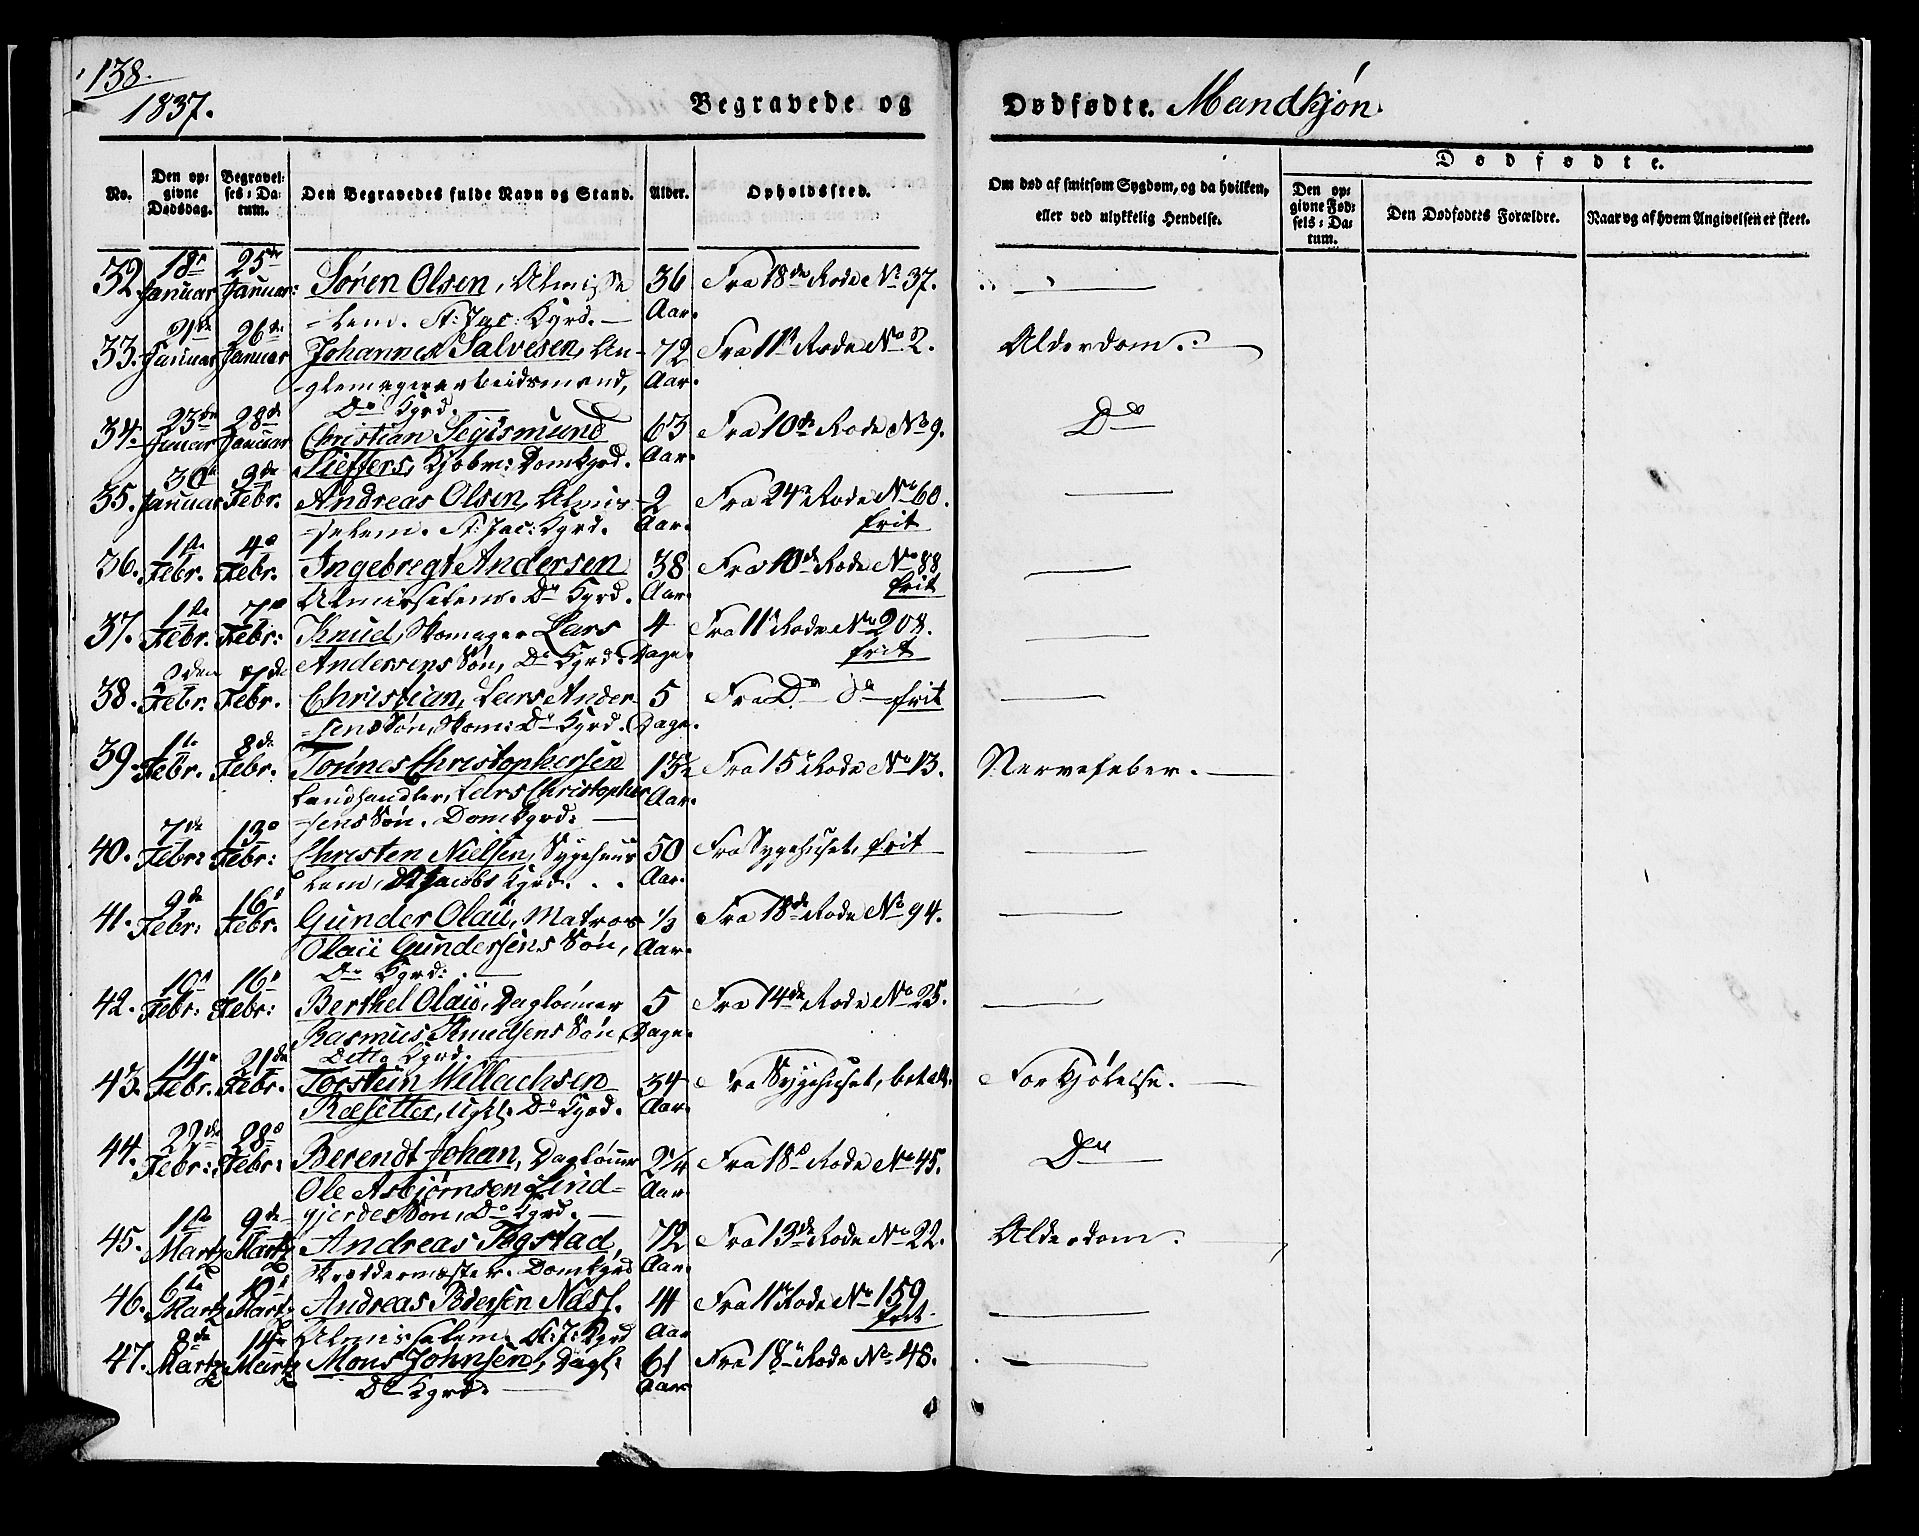 138.
1837.
Begravede og Dødfødte. Mandkjøn.
No. Den opgivne Dødsdag. Begravelses-Datum. Den Begravedes fulde Navn og Stand. Alder. Opholdssted. Om død af smitsom Sygdom, og da hvilken, eller ved ulykkelig Hendelse. Dødfødte.
Den opgivne Fødsels-Datum. Den Dødfødtes Forældre. Naar og af hvem Angivelsen er skeet.
32. 18de Januar 25de Januar: Søren Olsen, Almisse 36 Fra 18de Rode No 37.
=lem. St: Jac: Kgrd. Aar.
33. 21de Januar 26de Januar Johannes Salvesen, An- 72 Fra 11te Rode No 2. Alderdom.
-glemagerarbeidsmand, Aar.
Do Kgrd.
34. 23de Januar 28de Januar Christian Segismund 63 Fra 10de Rode No 9. Do
Sieffers, Kjøbm: Domkgrd. Aar.
35. 30te Januar 3de Febr. Andreas Olsen, Almis 2 Fra 24de Rode No 60.
-selem. St: Jac: Kgrd. Aar. frit
36. 1ste Febr. 4de Febr. Ingebregt Andersen 38 Fra 10de Rode No 88
Almisselem. Do Kgrd. Aar. frit
37. 1ste Febr. 7de Febr: Knud, Skomager Lars 4 Fra 11te Rode No 208.
Andersens Søn, Do Kgrd. Dage. frit
38. 2den Febr. 7de Febr. Christian, Lars Ander- 5 Fra Do Do frit
=sens Søn, Skom: Do Kgrd. Dage.
39. 1ste Febr. 8de Febr. Torines Christophersen 13½ Fra 15de Rode No 13. Nervefeber.
Landhandler, Lars Christopher Aar.
=sens Søn. Domkgrd:
40. 7de Febr: 13de Febr: Christen Nielsen, Sygehuus 50 Fra Sygehuset, frit
Lem, St Jacobs Kgrd. Aar.
41. 9de Febr: 16de Febr. Gunder Olaii, Matros ½ Fra 18de Rode No 94.
Olaii Gundersens Søn, Aar.
Do Kgrd:
42. 10de Febr: 16de Febr: Berthel Olaii, Daglønner 5 Fra 14de Rode No 25.
Rasmus Knudsens Søn, Dage.
Ditto Kgrd.
43. 14de Febr. 21de Febr. Torstein Willachsen 34 Fra Sygehuset, betalt. Forkjølelse.
Røsetter, Ugkl. Do Kgrd. Aar.
44. 22de Febr: 28de Febr: Berendt Johan, Daglønner 2¼ Fra 18de Rode No 45. Do
Ole Asbjørnsen Lind- Aar.
gjerdes Søn, Do Kgrd.
45. 1ste Martz 9de Martz Andreas Fogstad, 72 Fra 13de Rode No 22. Alderdom.
Skræddermester. Domkgrd Aar.
46. 6te Martz Martz Andreas Pedersen Næss. 41 Fra 11te Rode No 159
Almisselem. St: J: Kgrd Aar frit.
47. 8de Martz 14de Martz Mons Johnsen, Dagl: 61 Fra 18de Rode No 48.
Do Kgrd. Aar